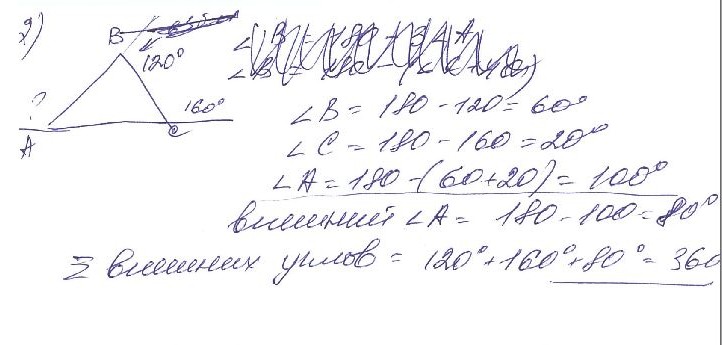 2)
B
120°
160°
?
A
C
∠B = 180 - 120 = 60°
∠C = 180 - 160 = 20°
∠A = 180 - (60+20) = 100°
внешний ∠A = 180 - 100 = 80°
Σ внешних углов = 120° + 160° + 80° = 360